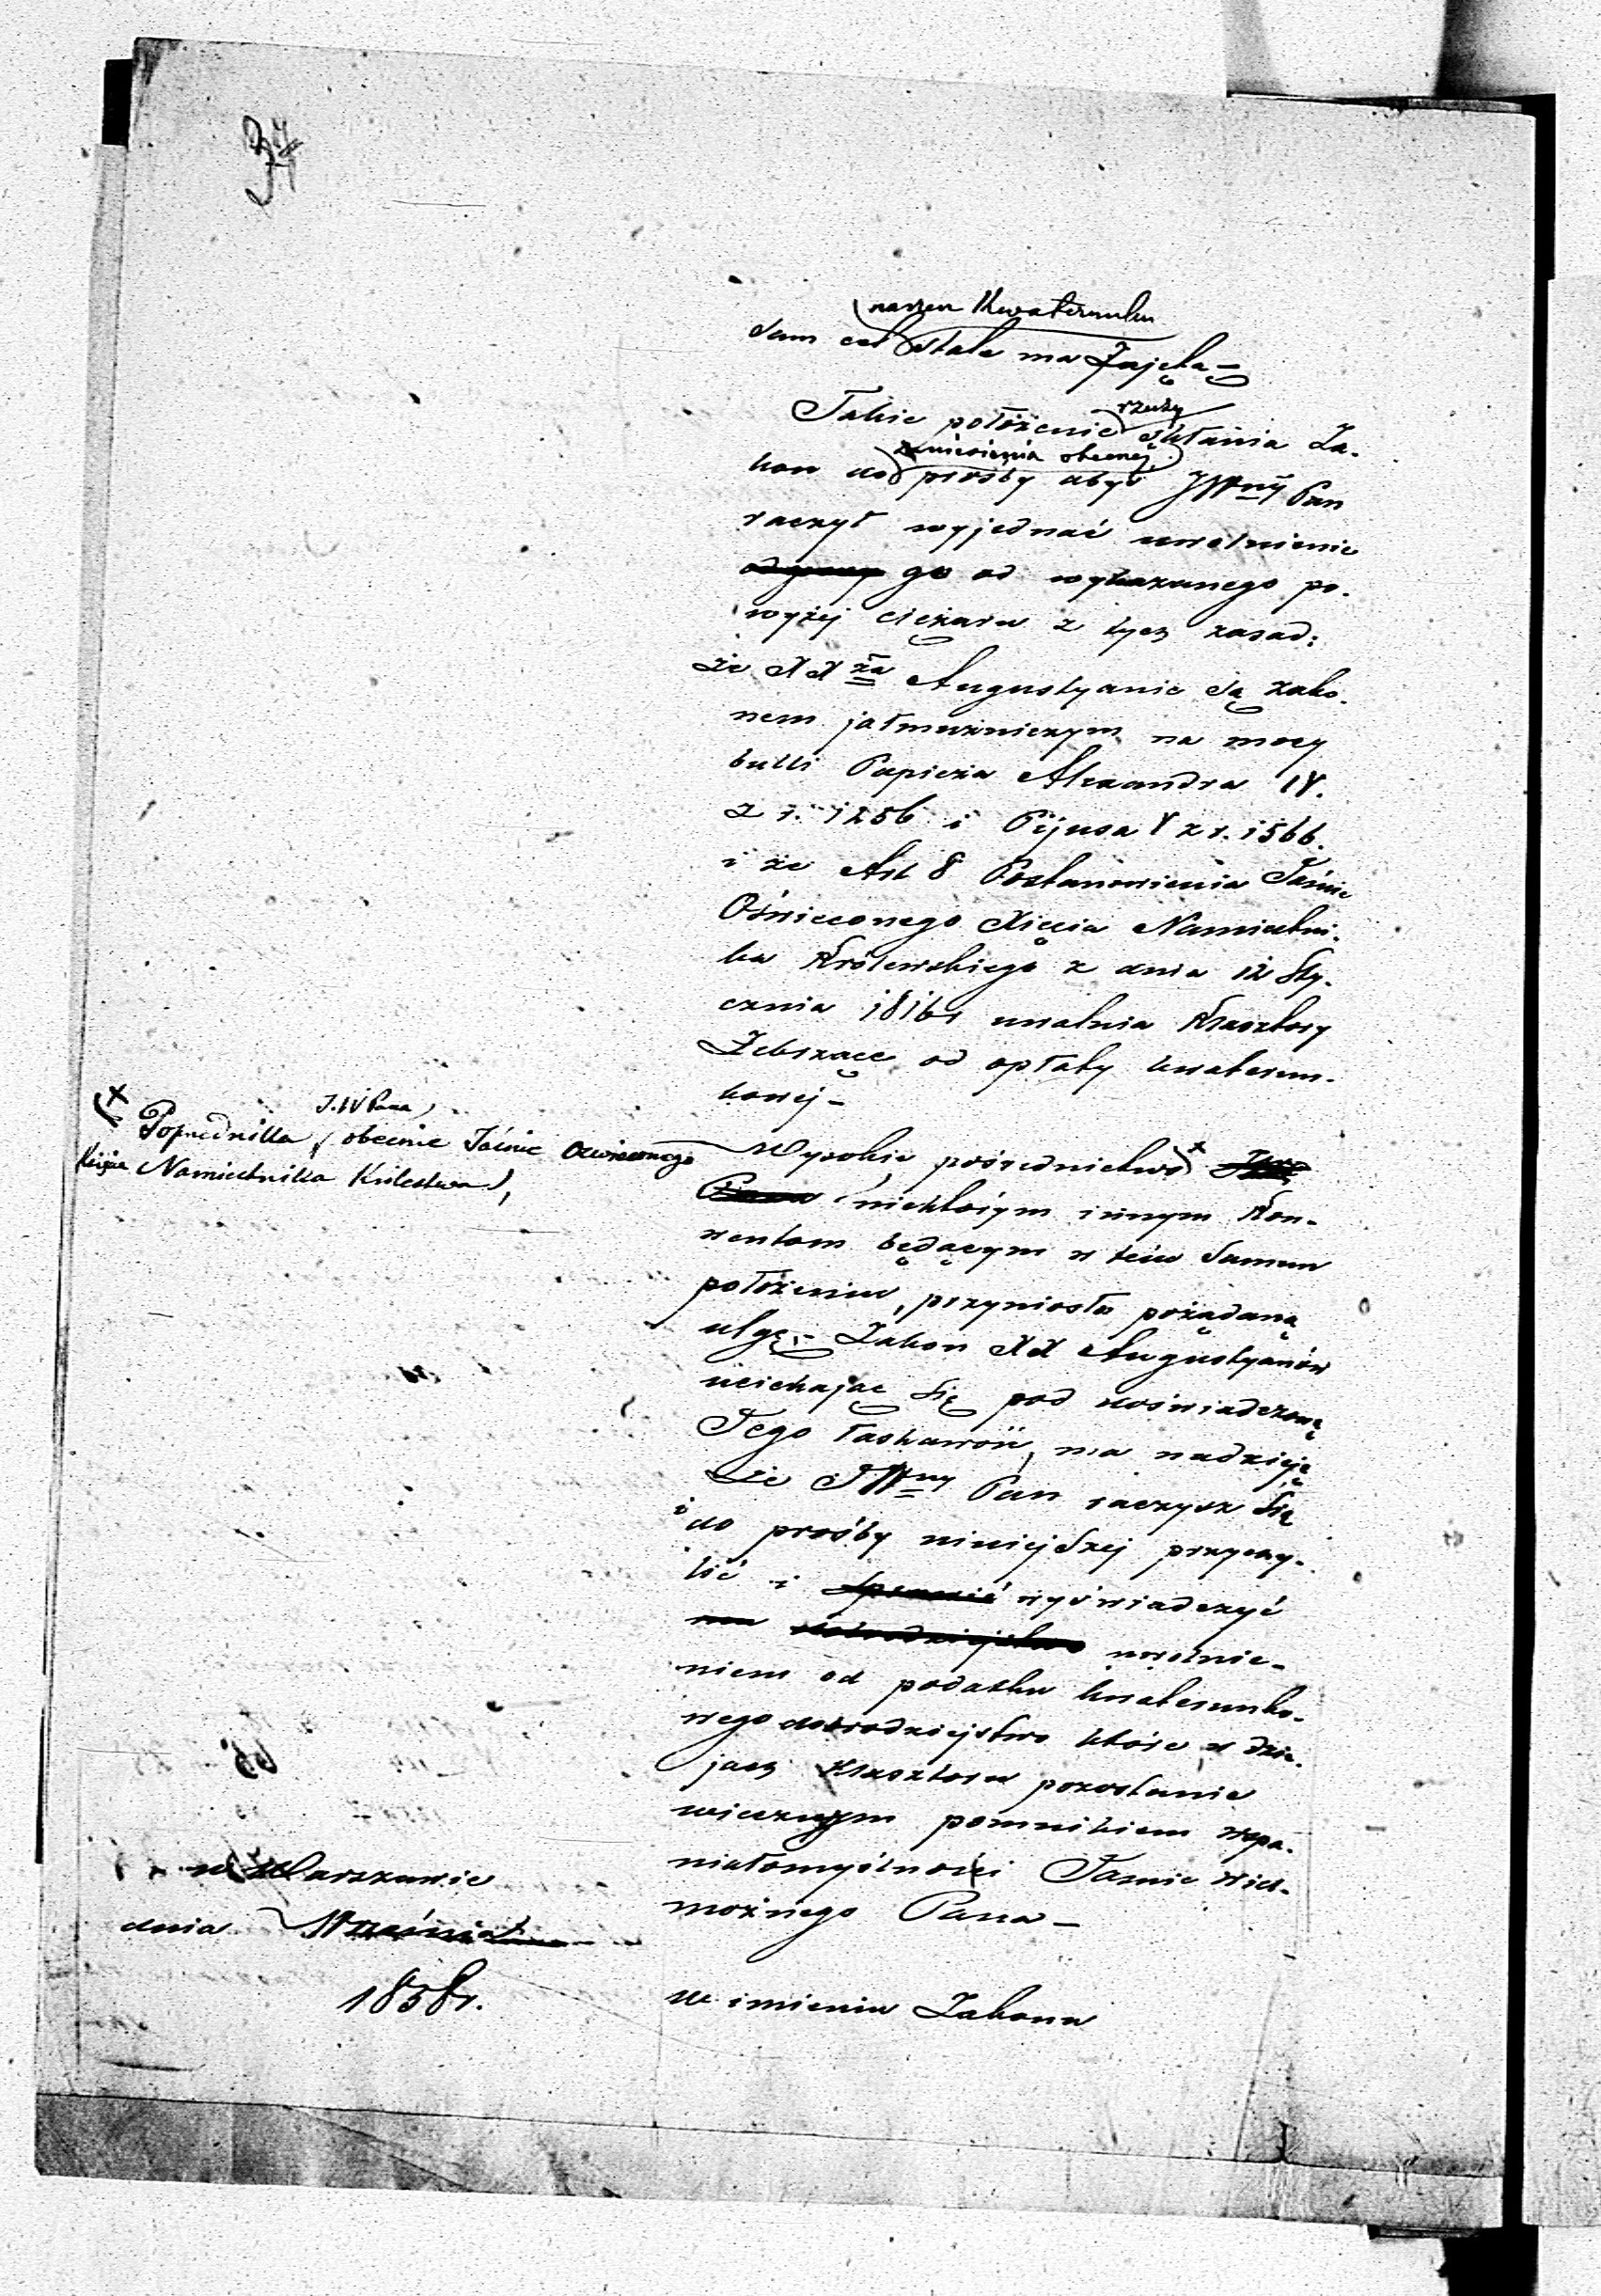 34
(naszem Kwaterunku
sam cel stale ma zajęta –
Takie położenie rzeczy skłania Za-
kon do zaniesienia obecnej prośby abyś JWny Pan
raczył wyjednać uwolnienie
go od wykazanego po-
wyżej ciężaru z tych zasad:
że XX ża Augustyanie są zako-
nem jałmużniczym na mocy
bulli Papieża Alexandra IV.
z r. 1256 i Pijusa V z r. 1566.
i że Art 8 Postanowienia Jaśnie
Oświeconego Xięcia Namiestni-
ka Królewskiego z dnia 12 Sty-
cznia 1816 r uwalnia Klasztory
Żebrzące od opłaty kwaterun-
kowej –
Wysokie pośrednictwo x Jwo
Pana niektórym innym Kon-
wentom będącym w tém samem
położeniu, przyniosło pożądaną
ulgę, – Zakon XX Augustyanów
uciekając się pod doświadczoną
Jego łaskawość, ma nadzieję
że JWny Pan raczysz się
i do prośby niniejszej przychy-
lić i wyświadczyć
mu dobrodziejstwo uwolnie-
niem od podatku kwaterunko-
wego dobrodziejstwo które w dzie-
jach Klasztoru pozostanie
wiecznym pomnikiem wspa-
niałomyślności Jaśnie Wiel-
możnego Pana –
(x J.W Pana)
Poprzednika (obecnie Jaśnie Oświeconego
Księcia Namiestnika Królestwa),
w Warszawie
dnia Września
1858 r.
w imieniu Zakonu